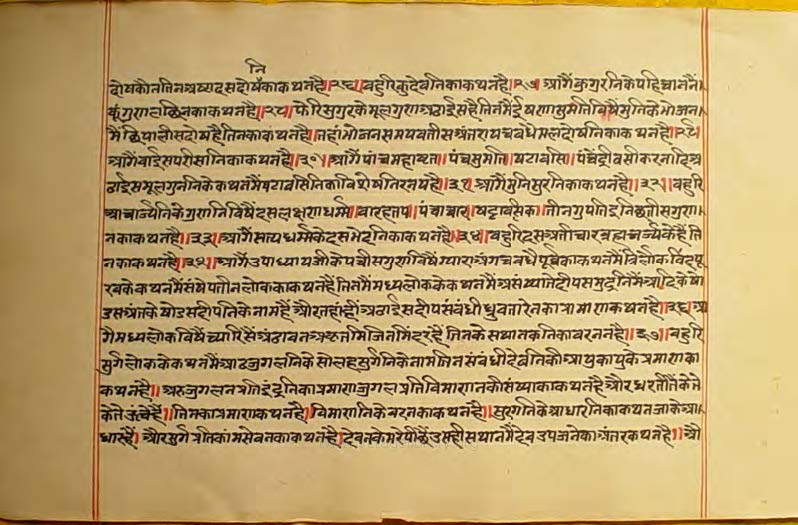 नि
दोषकौनतिनअष्टादसदोषकाकथनहै॥२६॥बहुरिकुदेवनिकाकथनहै॥२७॥आगैंकुगुरनिकेपहिचाननैं
कूंगुरालछिनकाकथनहै॥२८॥फेरिसुगुरकेमूलगुराअठाईसहैतिनमैंईषणासुमतिविषैमुनिकेभोजन
मैंछियालीसदोषहैतिनकाकथनहै॥तहांभोजनसमयबतीसअंतरायचवधेमलदोषनिकाकथनहै॥२९॥
आगैंवाईसपरीसानिकाकथनहै॥३०॥आगैंपांचमहाव्रत॥पंचसुमति॥षटावसि॥पंचेंद्रीवसीकरनादिअ
ठाईसमूलगुननिकेकथनमैंषटावसिनिकाविशेषनिरनयहै॥३१॥आगैंमुनिसुरनिकाकथनहै॥३२॥बहुरि
आचार्ज्यनिकेगुरानिविषैंदसलक्षराधर्म्म॥बारहतप॥पंचाचार॥षट्टावसिक॥तीनगुपतिइनिछतीसगुरा
नकाकथनहै॥३३॥आगैंसत्यधर्म्मकेदसभेदनिकाकथनहै॥३४॥बहुरिदसअतीचारब्रह्मचर्ज्यकेहैंति
नकाकथनहै॥३५॥आगैंउपाध्यायजीकेपचीसगुराविषैंग्याराअंगचवधेपूर्वकाकथनमैंत्रिलोकविंदपू
रबकेकथनमैंसंषेपतीनलोककाकथनहैतिनमैंमध्यलोककेकथनमैंअसंख्यातदीपसमुद्रनिमैंआदिकेषो
उसअंतकेषोडसदीपतिकेनामहैंऔरतहांहींअठाईसदीपसंबंधीध्रुवतारेनकाप्रमाराकथनहै॥३६॥आ
गैंमध्यलोकविषैंच्यारिसैंअंठावनअकृतमिजिनमिंदरहैंतिनकेसथानकनिकावरननहै॥३७॥बहुरि
सुर्गलोककेकथनमैंआठजुगलनिकेसोलहसुर्गनिकेनामतिनसंबंधीदेवनिकीआयुकायकेप्रमाराका
कथनहै॥अरुजुगलनप्रतिइंद्रनिकाप्रमाराजुगलप्रतिविमाराानकीसंख्याकाकथनहैऔरधरतीतैंकेते
केतेऊंचेहैं॥तिनकाप्रमाराकथनहै॥विमारानिकेवरनकाकथनहै॥सुरगनिकेआधारनिकाकथनजाकेआ
धारहैं॥औरसुर्गप्रतिकामसेवनकाकथनहै॥देवनकेमरेपीछैंउसहीसथानमैंदेवउपजनेकाअंतरकथनहै॥औ